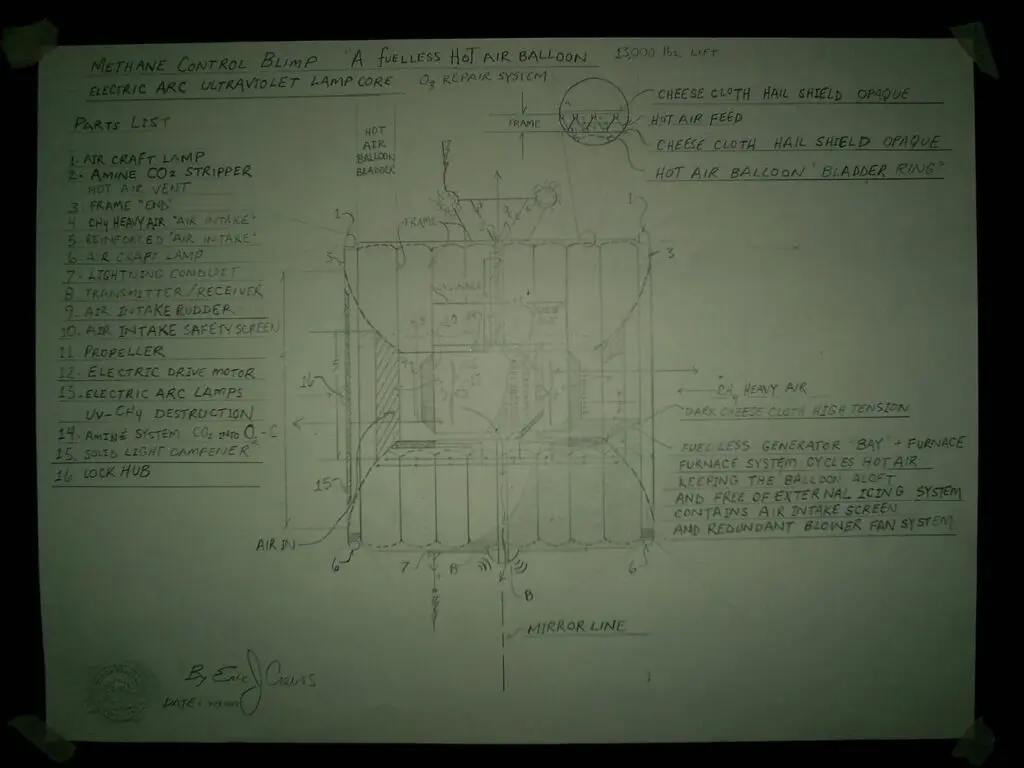 METHANE CONTROL BLIMP "A FUELLESS HOT AIR BALLOON 13,000 lbs. LIFT
ELECTRIC ARC ULTRAVIOLET LAMP CORE O3 REPAIR SYSTEM
PARTS LIST
1. AIR CRAFT LAMP
2. AMINE CO2 STRIPPER
HOT AIR VENT
3 FRAME "END"
4 CH4 HEAVY AIR "AIR INTAKE"
5 REINFORCED "AIR INTAKE"
6 AIR CRAFT LAMP
7 - LIGHTNING CONDUIT
8 TRANSMITTER/RECEIVER
9. AIR INTAKE RUDDER
10. AIR INTAKE SAFETY SCREEN
11 PROPELLER
12. ELECTRIC DRIVE MOTOR
13. ELECTRIC ARC LAMPS
UV-CH4 DESTRUCTION
14. AMINE SYSTEM CO2 INTO O2-C
15. SOLID LIGHT DAMPENER
16 LOCK HUB
HOT
AIR
BALLOON
BLADDER
FRAME
CHEESE CLOTH HAIL SHIELD OPAQUE
HOT AIR FEED
CHEESE CLOTH HAIL SHIELD OPAQUE
HOT AIR BALLOON "BLADDER RING"
FRAME
1
1
5
3
16
15
CH4 HEAVY AIR
DARK CHEESE CLOTH HIGH TENSION
FUEL LESS GENERATOR "BAY" + FURNACE
FURNACE SYSTEM CYCLES HOT AIR
KEEPING THE BALLOON ALOFT
AND FREE OF EXTERNAL ICING SYSTEM
CONTAINS AIR INTAKE SCREEN
AND REDUNDANT BLOWER FAN SYSTEM
AIR IN
6
7
8
8
6
MIRROR LINE
By Eric J
DATE: